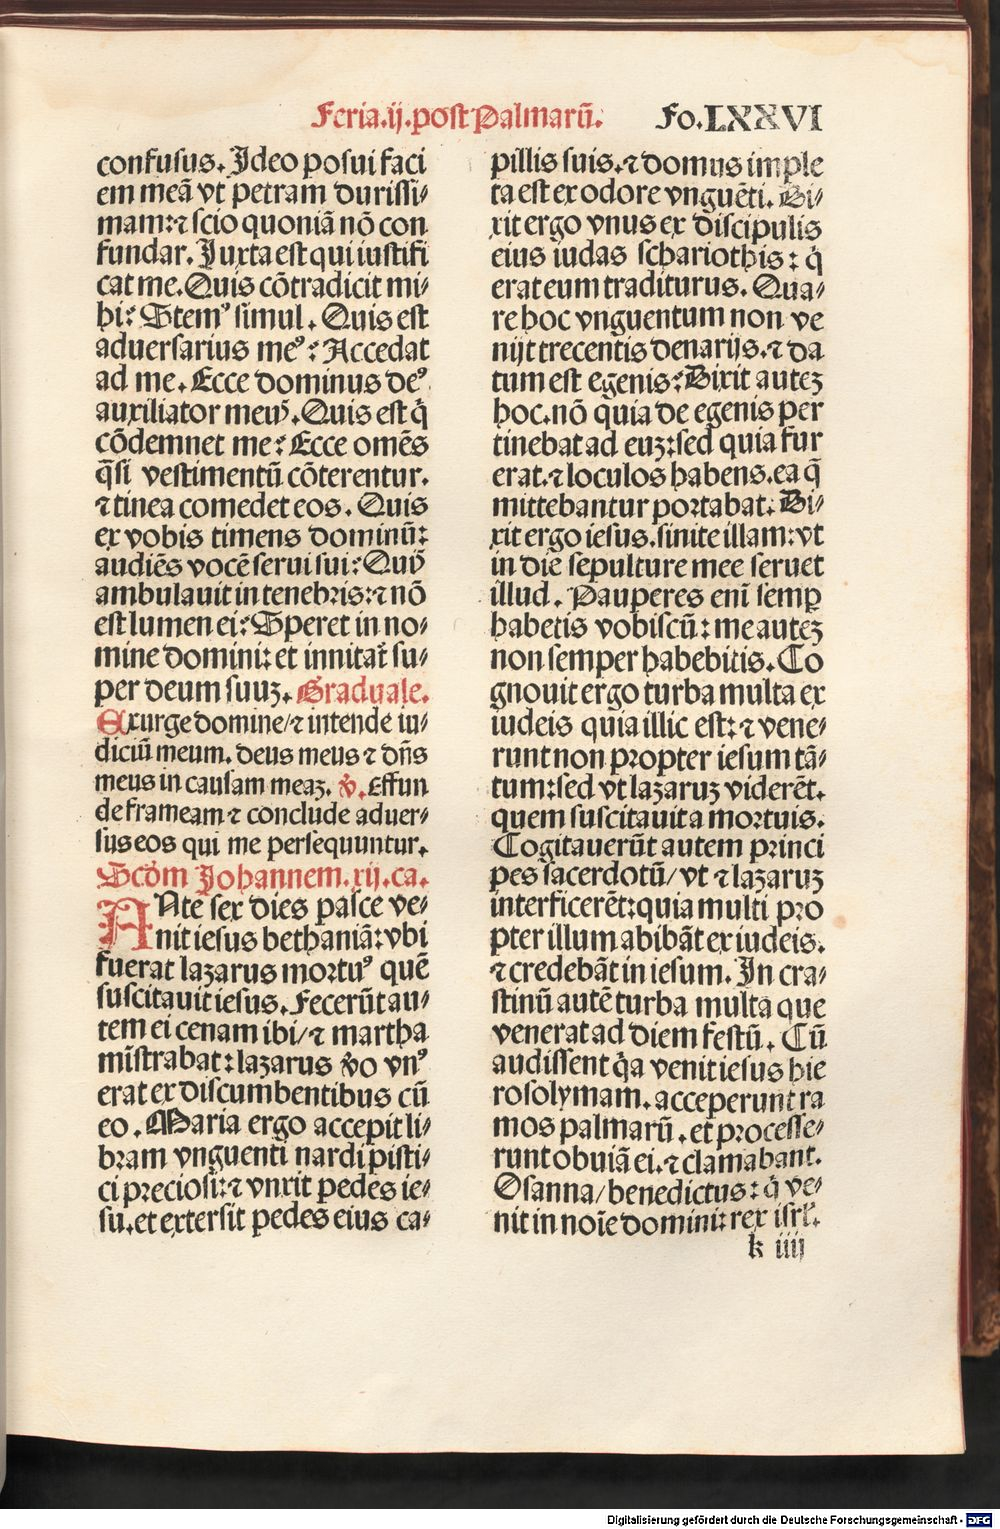 Feria.ij.post Palmarū.
Fo.LXXVI
confusus. Ideo posui faci
em meā vt petram durissi⸗
mam: ⁊ scio quoniā nō con
fundar. Iuxta est qui iustifi
cat me. Quis cōtradicit mi⸗
hi: Stemꝰ simul. Quis est
aduersarius meꝰ: Accedat
ad me. Ecce dominus deꝰ
auxiliator meuꝰ. Quis est q̇
cōdemnet me: Ecce omēs
q̄si vestimentū cōterentur.
⁊ tinea comedet eos. Quis
ex vobis timens dominū:
audiēs vocē serui sui: Quiꝰ
ambulauit in tenebris: ⁊ nō
est lumen ei: Speret in no⸗
mine domini: et innitat̄ su⸗
per deum suuꝫ. Graduale.
Exurge domine/⁊ intende iu⸗
diciū meum. deus meus ⁊ dn̄s
meus in causam meaꝫ. v̇. Effun
de frameam ⁊ conclude aduer⸗
sus eos qui me persequuntur.
Scd̄m Johannem.xij.ca.
ANte sex dies pasce ve⸗
nit iesus bethaniā: vbi
fuerat lazarus mortuꝰ quē
suscitauit iesus. Fecerūt au⸗
tem ei cenam ibi/⁊ martha
mīstrabat: lazarus v̇o vnꝰ
erat ex discumbentibus cū
eo. Maria ergo accepit li⸗
bram vnguenti nardi pisti⸗
ci preciosi: ⁊ vnxit pedes ie⸗
su. et extersit pedes eius ca⸗
pillis suis. ⁊ domus imple
ta est ex odore vnguēti. Di⸗
xit ergo vnus ex discipulis
eius iudas schariothis: q̇
erat eum traditurus. Qua⸗
re hoc vnguentum non ve
nijt trecentis denarijs. ⁊ da
tum est egenis: Dixit auteꝫ
hoc. nō quia de egenis per
tinebat ad euꝫ: sed quia fur
erat. ⁊ loculos habens. ea q̄
mittebantur portabat. Di⸗
xit ergo iesus. sinite illam: vt
in die sepulture mee seruet
illud. Pauperes enī semꝑ
habetis vobiscū: me auteꝫ
non semper habebitis. Co
gnouit ergo turba multa ex
iudeis quia illic est: ⁊ vene⸗
runt non propter iesum tā⸗
tum: sed vt lazaruꝫ viderēt.
quem suscitauit a mortuis.
Cogitauerūt autem princi
pes sacerdotū/ vt ⁊ lazaruꝫ
interficerēt: quia multi pro
pter illum abibāt ex iudeis.
⁊ credebāt in iesum. In cra⸗
stinū autē turba multa que
venerat ad diem festū. Cū
audissent q̇a venit iesus hie
rosolymam. acceperunt ra
mos palmarū. et processe⸗
runt obuiā ei. ⁊ clamabant.
Osanna/benedictus: q̇ ve⸗
nit in noīe domini: rex isrl̄.
k iiij
Digitalisierung gefördert durch die Deutsche Forschungsgemeinschaft - DFG